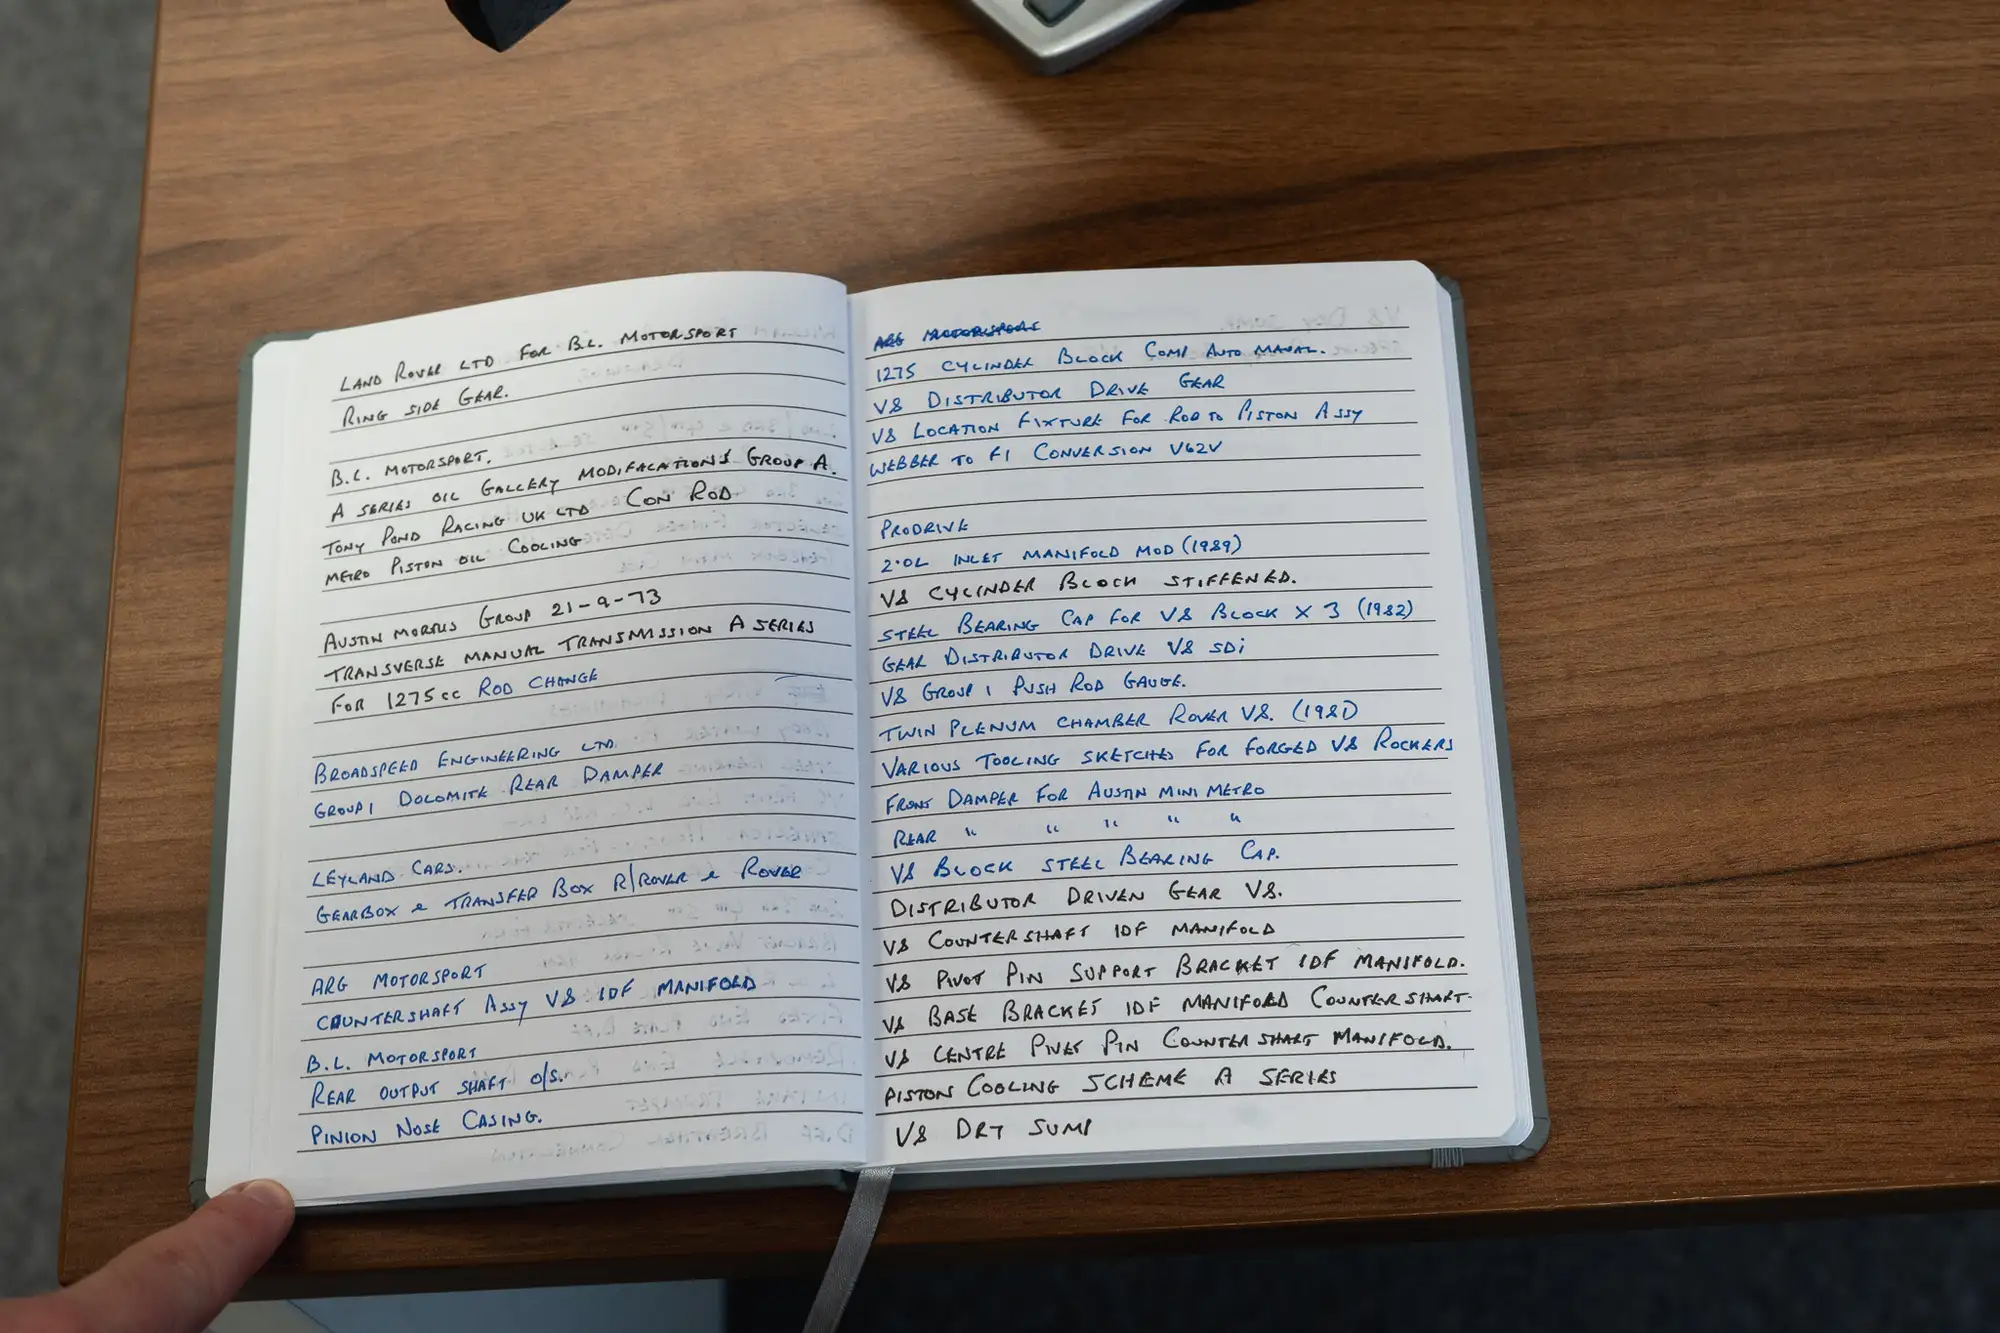 LAND ROVER LTD FOR B.L. MOTORSPORT
RING SIDE GEAR.
B.L. MOTORSPORT.
A SERIES OIL GALLERY MODIFACATIONS GROUP A.
TONY POND RACING UK LTD CON ROD
METRO PISTON OIL COOLING
AUSTIN MORRIS GROUP 21-9-73
TRANSVERSE MANUAL TRANSMISSION A SERIES
FOR 1275cc ROD CHANGE
BROADSPEED ENGINEERING LTD.
GROUP 1 DOLOMITE REAR DAMPER
LEYLAND CARS.
GEARBOX & TRANSFER BOX R/ROVER & ROVER
ARG MOTORSPORT
COUNTERSHAFT ASSY V8 IDF MANIFOLD
B.L. MOTORSPORT
REAR OUTPUT SHAFT O/S.
PINION NOSE CASING.
ARG MOTORSPORT
1275 CYLINDER BLOCK COMP AUTO MANAL.
V8 DISTRIBUTOR DRIVE GEAR
V8 LOCATION FIXTURE FOR ROD TO PISTON ASSY
WEBBER TO F1 CONVERSION V62V
PRODRIVE
2.0L INLET MANIFOLD MOD (1989)
V8 CYLINDER BLOCK STIFFENED.
STEEL BEARING CAP FOR V8 BLOCK X 3 (1982)
GEAR DISTRIBUTOR DRIVE V8 SDi
V8 GROUP 1 PUSH ROD GAUGE.
TWIN PLENUM CHAMBER ROVER V8. (1981)
VARIOUS TOOLING SKETCHES FOR FORGED V8 ROCKERS
FRONT DAMPER FOR AUSTIN MINI METRO
REAR " " " " "
V8 BLOCK STEEL BEARING CAP.
DISTRIBUTOR DRIVEN GEAR V8.
V8 COUNTERSHAFT IDF MANIFOLD
V8 PIVOT PIN SUPPORT BRACKET IDF MANIFOLD.
V8 BASE BRACKET IDF MANIFORD COUNTERSHAFT.
V8 CENTRE PIVET PIN COUNTERSHAFT MANIFOLD.
PISTON COOLING SCHEME A SERIES
V8 DRY SUMP